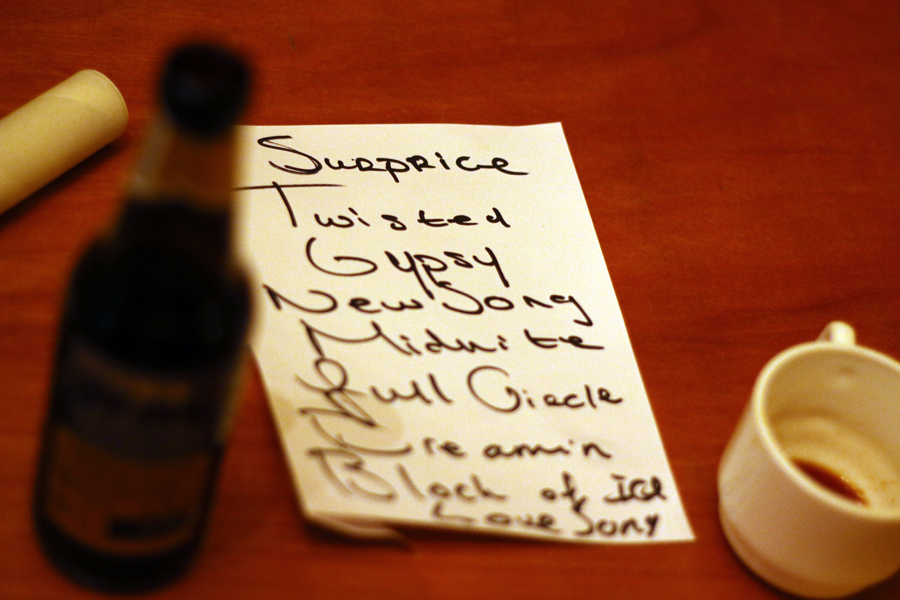 Surprice
Twisted
Gypsy
New Song
Midnite
Full Circle
Dreamin
Block of Ice
Love Song